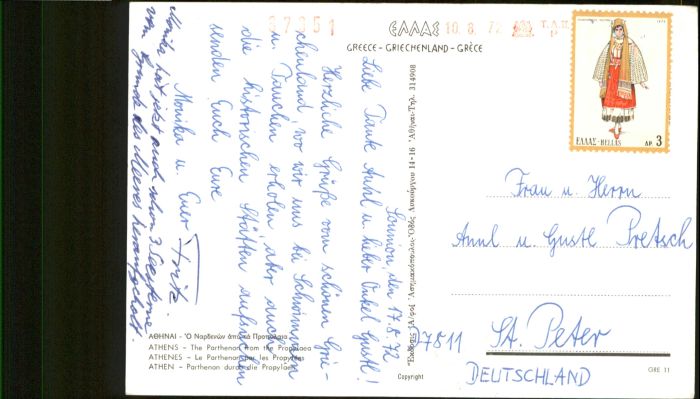 87351
ΕΛΛΑΣ 10.8.72
GREECE - GRIECHENLAND - GRÈCE
ΕΛΛΑΣ-HELLAS ΔΡ. 3
Sounion, den 17.8.72
Liebe Tante Annl u. lieber Onkel Gustl!
Herzliche Grüße vom schönen Grie-
chenland, wo wir uns bei Schwimmen
u. Tauchen erholen, aber auch
die historischen Stätten aufsuchen
senden Euch Eure
Monika u. Euer Fritz
Monika hat jetzt auch schon 3 Seesterne
vom Grunde des Meeres heraufgeholt.
Frau u. Herrn
Annl u. Gustl Pretsch
27811 St. Peter
DEUTSCHLAND
ΑΘΗΝΑΙ - Ὁ Παρθενών ἀπό τά Προπύλαια
ATHENS - The Parthenon from the Propylaea
ATHENES - Le Parthenon par les Propylées
ATHEN - Parthenon durch die Propyläen
Copyright
GRE 11